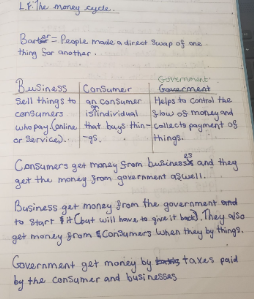 L.F. The money cycle.
Barter = People made a direct swap of one
thing for another.
Business Consumer Government
Sell things to an consumer Helps to control the
consumers is individual flow of money and
who pay. (online that buys thin- collects payment of
or service). gs. things.
Consumers get money from business's and they
get the money from government aswell.
Business get money from the government and
to start it (but will have to give it back). They also
get money from consumers when they by things.
Government get money by taxes paid
by the consumer and businesses